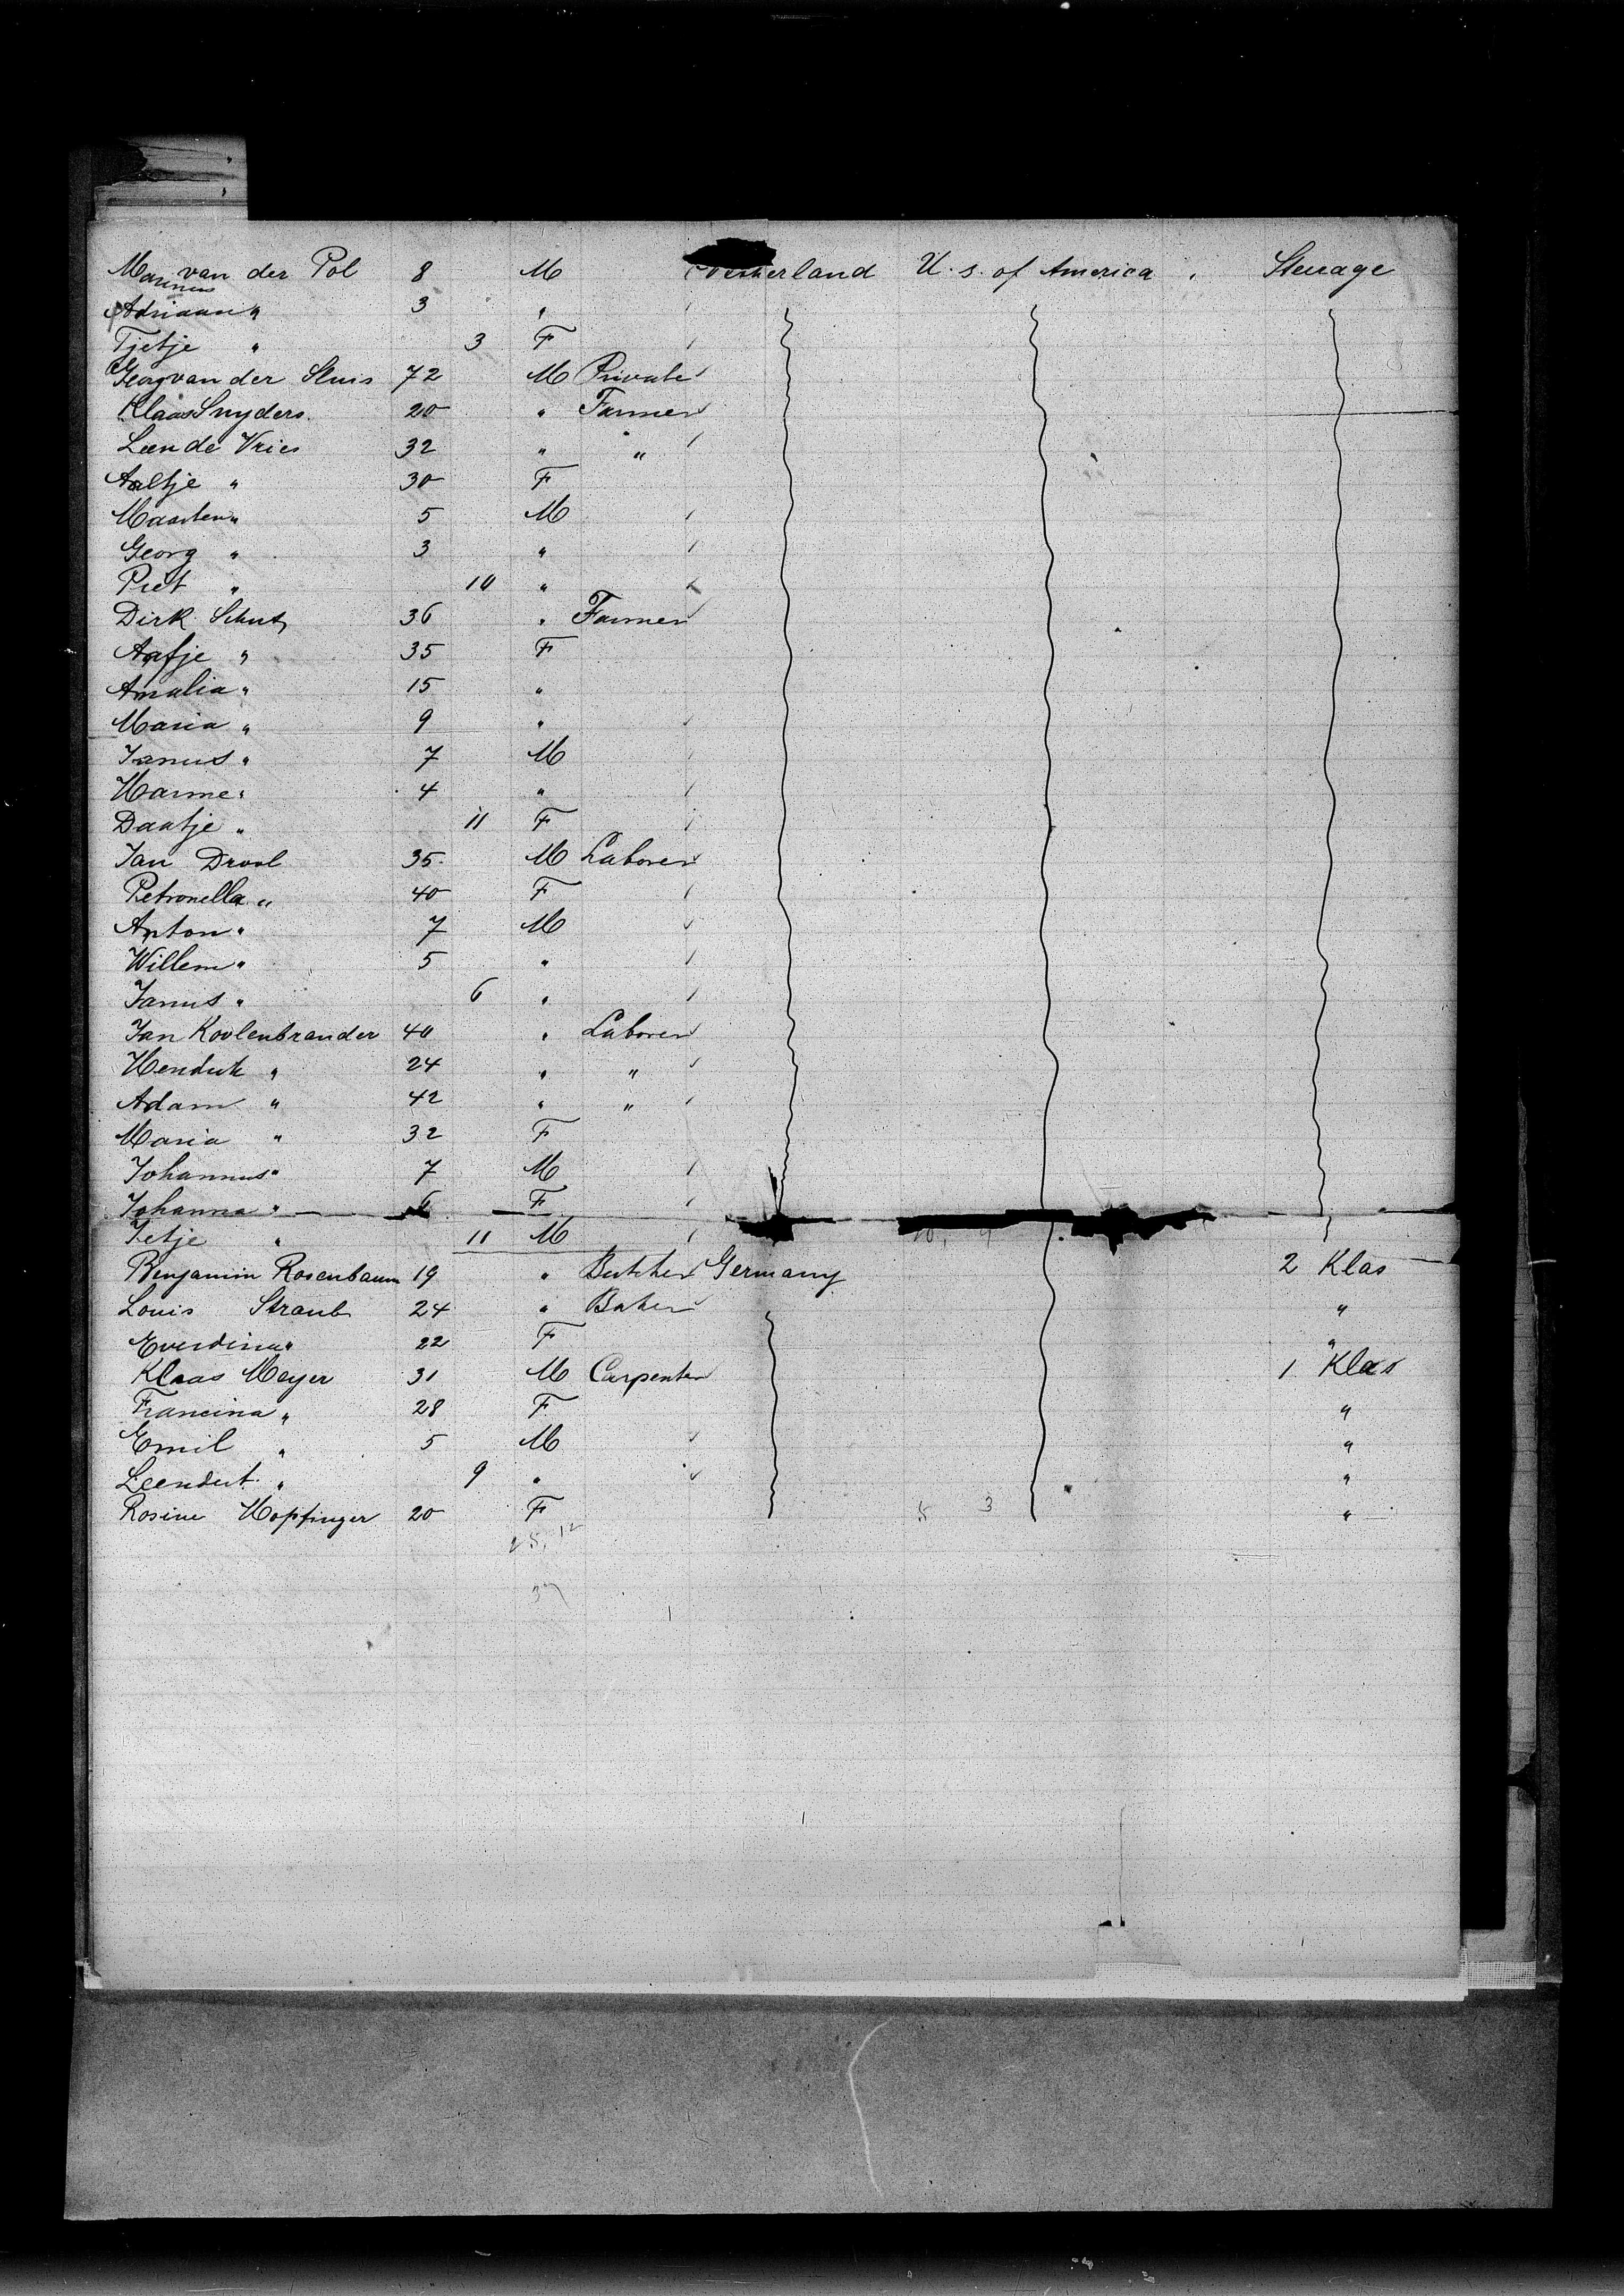 Marinus van der Pol 8 M Netherland U. s. of America Steerage
Adriaan " 3 "
Tjetje " 3 F
Georg van der Sluis 72 M Private
Klaas Snyders 20 " Farmer
Leen de Vries 32 " "
Aaltje " 30 F
Maarten " 5 M
Georg " 3 "
Piet " 10 "
Dirk Schut 36 " Farmer
Aafje " 35 F
Amalia " 15 "
Maria " 9 "
Janus " 7 M
Harme " 4 "
Daatje " 11 F
Jan Drool 35 M Laborer
Petronella " 40 F
Anton " 7 M
Willem " 5 "
Janus " 6 "
Jan Koolenbrander 40 " Laborer
Hendrik " 24 " "
Adam " 42 " "
Maria " 32 F
Johannus " 7 M
Johanna " 6 F
Jetje " 11 M
Benjamin Rosenbaum 19 " Butcher Germany 2 Klas
Louis Straub 24 " Baker "
Everdina " 22 F "
Klaas Meyer 31 M Carpenter 1 Klas
Francina " 28 F "
Emil " 5 M "
Leendert " 9 " "
Rosine Hopfinger 20 F 5 3 "
25, 12
37